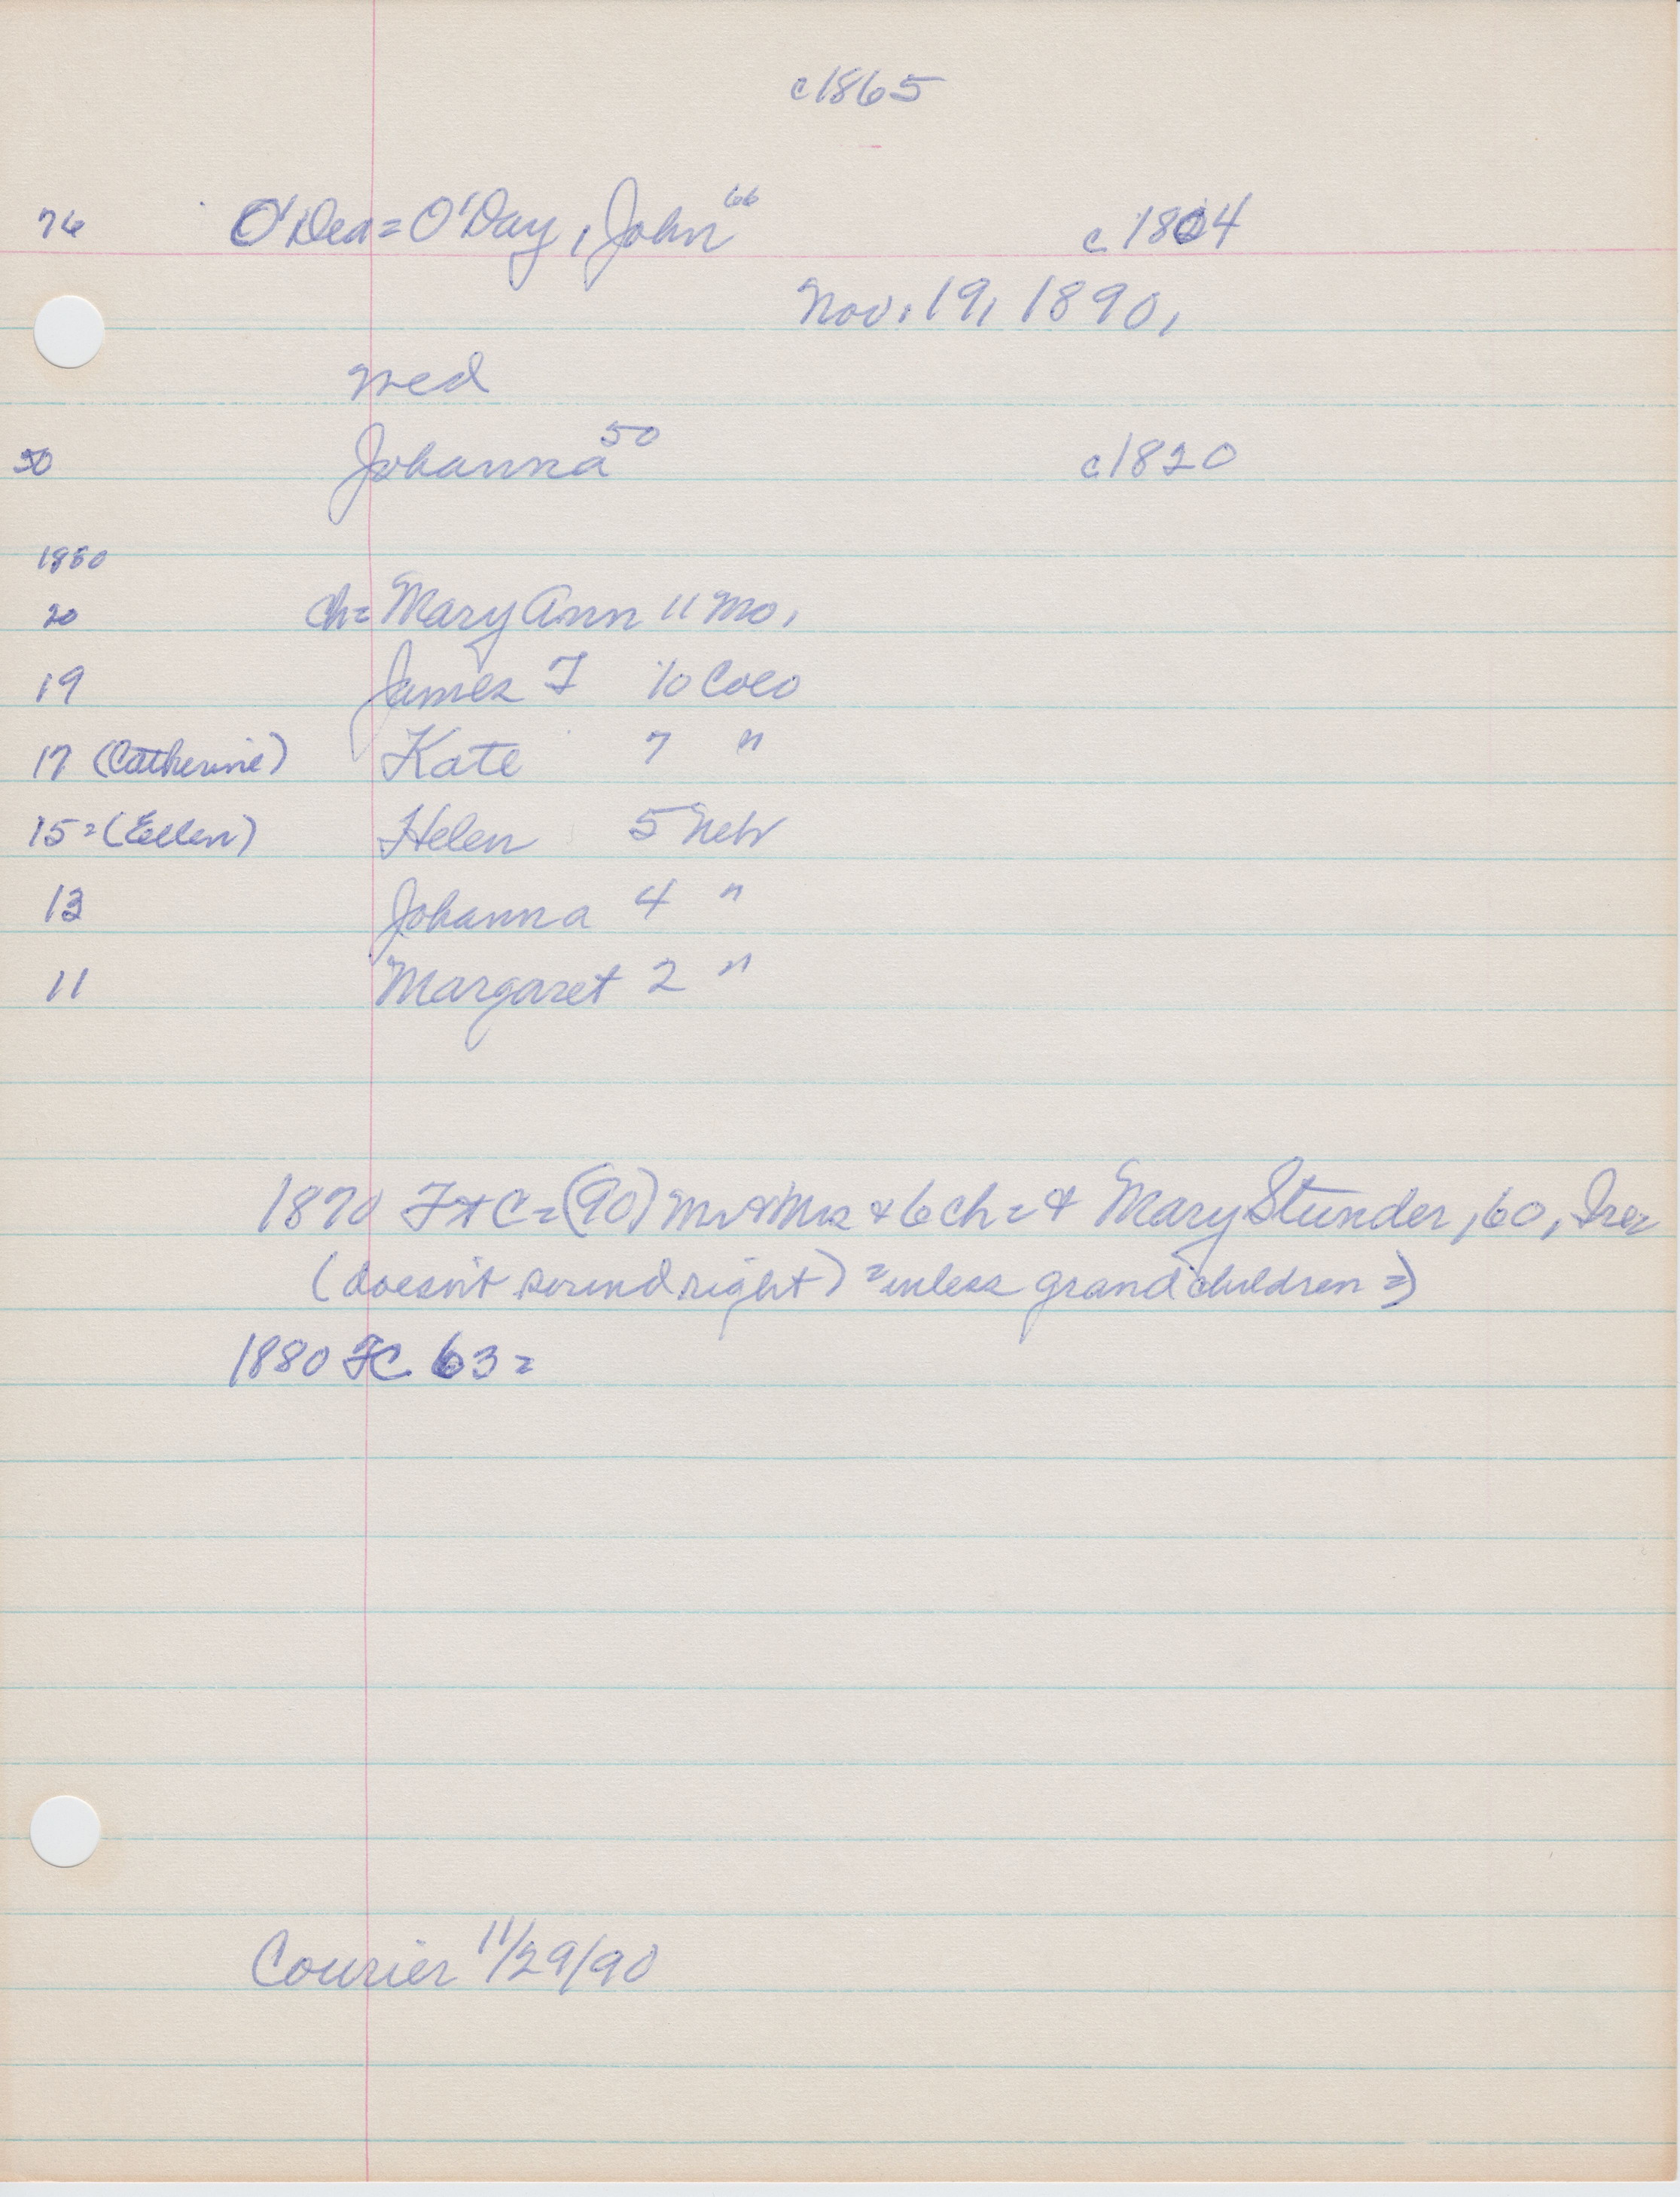 c1865
76 O'Dea = O'Day, John 66 c1804
Nov. 19, 1890,
med
50 Johanna 50 c1820
1880
20 ch = Mary Ann 11 Mo,
19 James F 10 Colo
17 (Catherine) Kate 7 "
15 = (Eellen) Helen 5 Nebr
13 Johanna 4 "
11 Margaret 2 "
1870 F+C = (90) Mr & Mrs + 6 ch = + Mary Stunder, 60, Ire
(doesn't sound right) = unless grandchildren =)
1880 FC 63 =
Courier 11/29/90